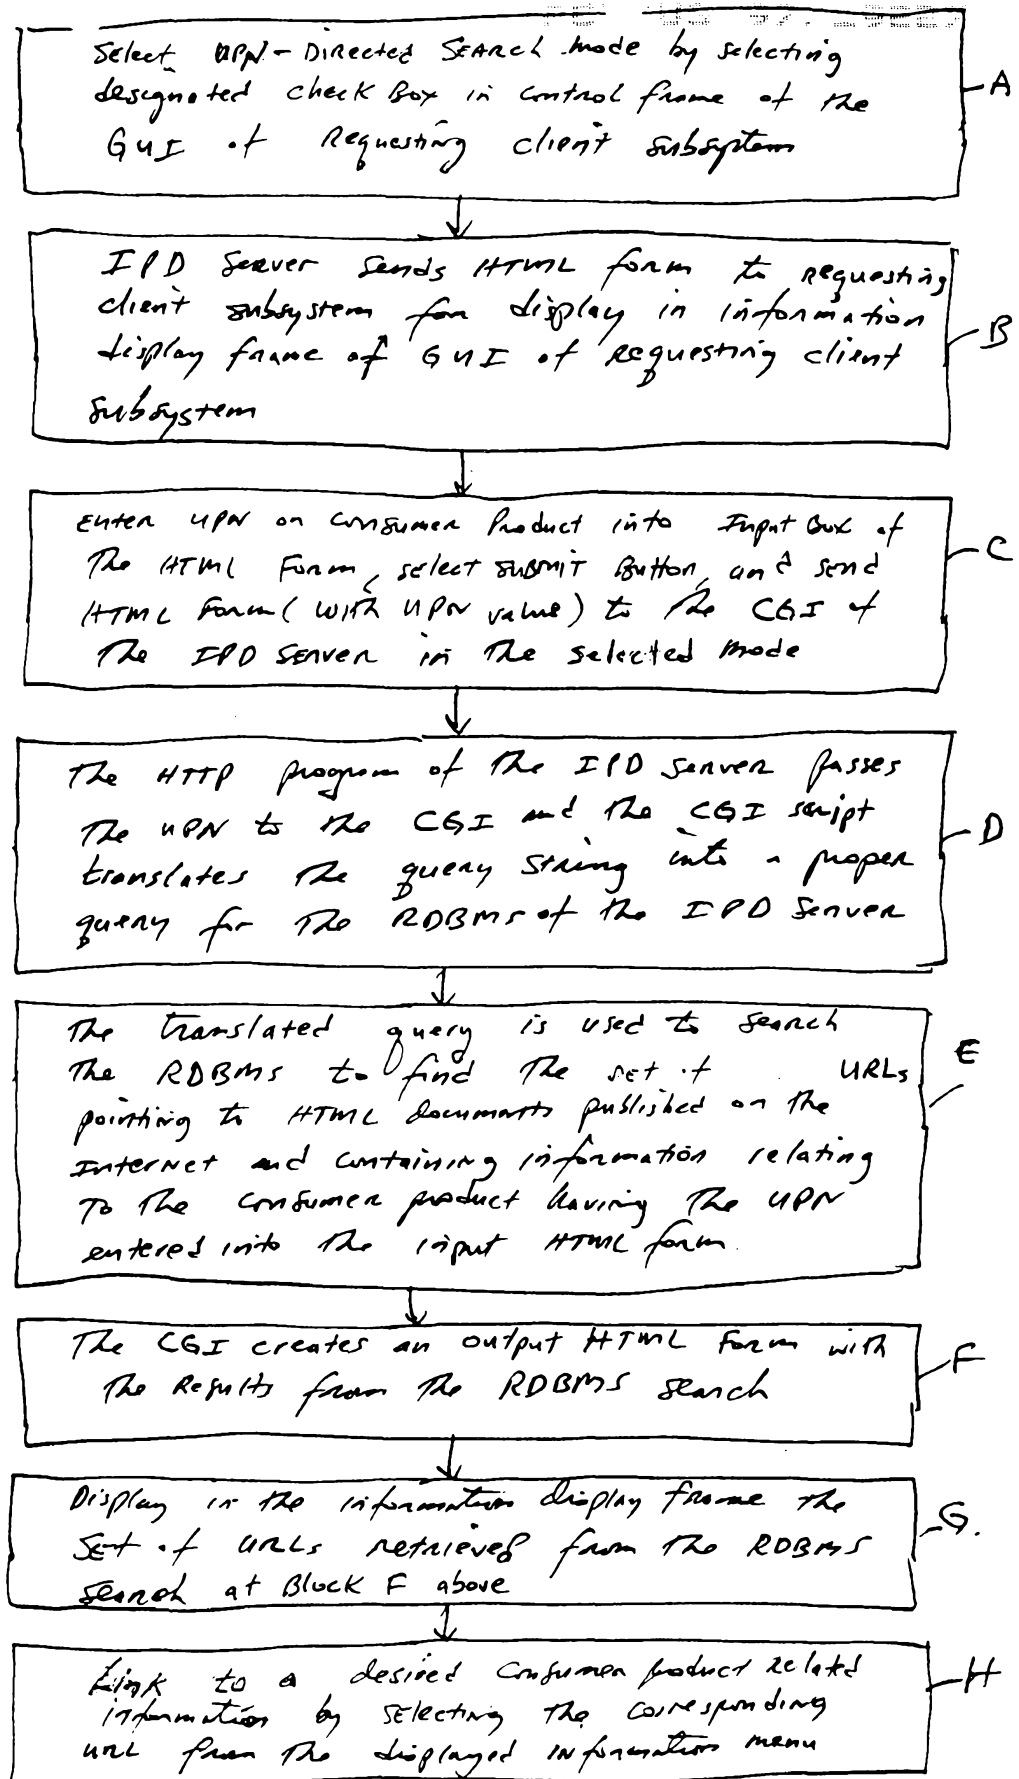 Select UPN-Directed Search mode by selecting
designated check Box in control frame of the
GUI of Requesting client subsystem
A
IPD Server sends HTML form to requesting
client subsystem for display in information
display frame of GUI of requesting client
subsystem
B
Enter UPN on Consumer Product into Input Box of
The HTML Form, select Submit Button, and send
HTML Form (with UPN value) to the CGI of
The IPD Server in the selected mode
C
The HTTP program of the IPD Server passes
The UPN to the CGI and the CGI script
translates the query string into a proper
query for the RDBMS of the IPD Server
D
The translated query is used to search
The RDBMS to find the set of URLs
pointing to HTML documents published on the
Internet and containing information relating
To the consumer product having the UPN
entered into the input HTML form.
E
The CGI creates an output HTML Form with
The Results from the RDBMS search
F
Display in the information display frame the
Set of URLs retrieved from the RDBMS
search at Block F above
G.
Link to a desired Consumer product related
information by selecting the corresponding
URL from the displayed information menu
H